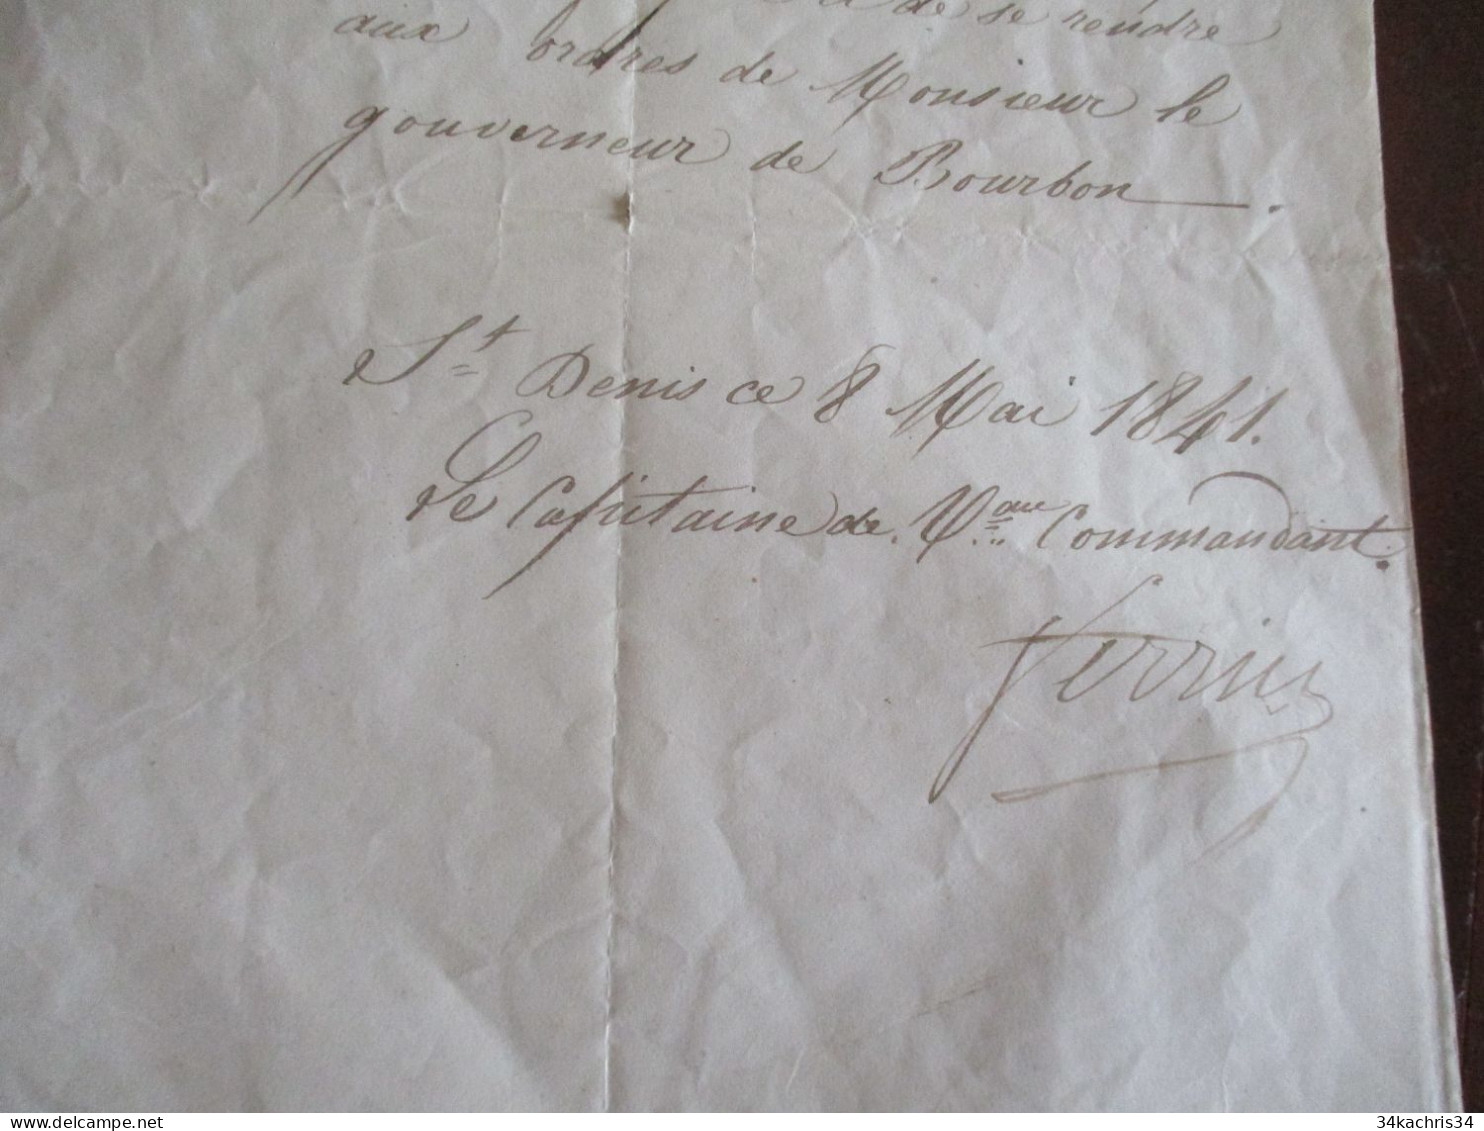 de se rendre
aux ordres de Monsieur le
gouverneur de Bourbon.
St Denis ce 8 Mai 1841.
Le Capitaine de Veau Commandant.
Verrin
delcampe.net
34kachris34